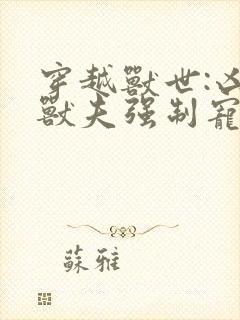 穿越獸世:凶
獸夫强制寵
蘇雅